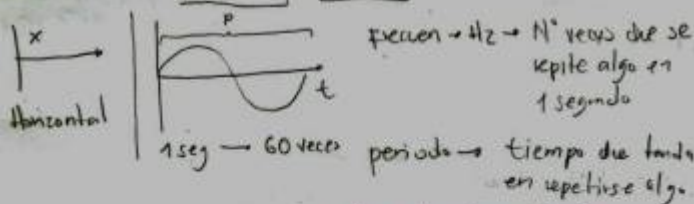 P
x
t
Horizontal
1 seg → 60 veces
frecuen → Hz → N° veces que se
repite algo en
1 segundo
periodo → tiempo que tarda
en repetirse algo.